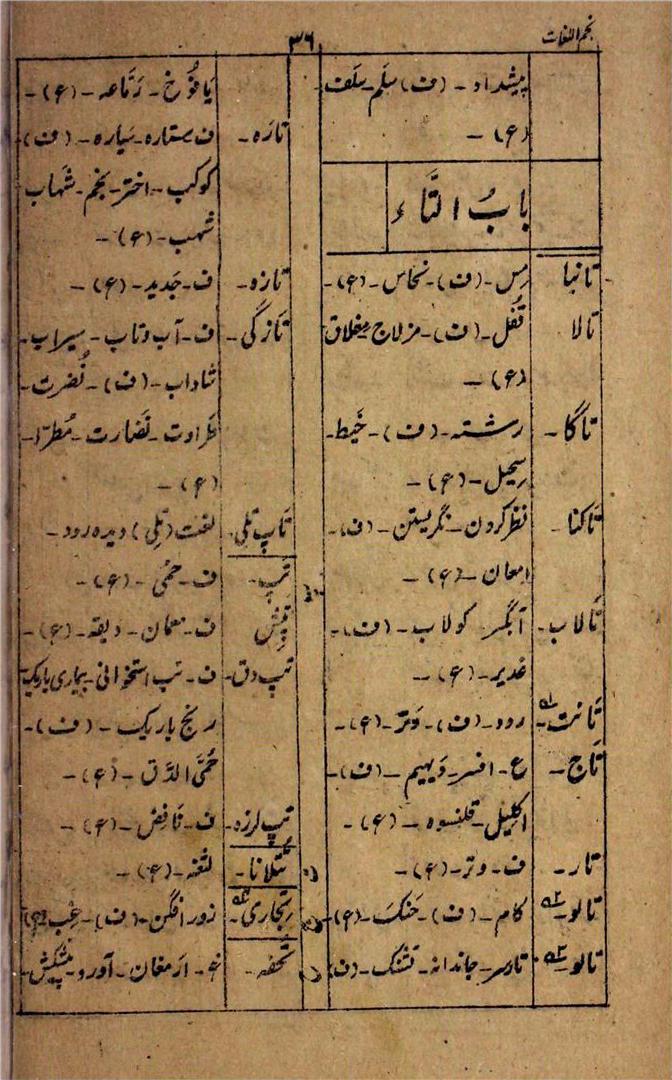 نجم اللغات
۳۶
پیشداد - (ف) سلم سلف
(ع) -
باب التّاء
تانبا مس - (ف) - نحاس - (ع) -
تالا قُفل - (ف) - مزلاج مغلاق
(ع) -
تاگا - رشتہ - (ف) - خَیط -
سحیل - (ع) -
تاکنا - نظر کردن - نگریستن - (ف) -
امعان - (ع) -
تالاب - آبگیر کولاب - (ف) -
غدیر - (ع) -
تانت - رود - (ف) - وتر - (ع) -
تاج - ع - افسر - دیہیم - (ف) -
اکلیل - قلنسوہ - (ع) -
تار - ف - وتر - (ع) -
تالو - کام - (ف) - حنک - (ع) -
تالو - جاندانہ - (ف)
یافوخ - رماعہ - (ع) -
تارہ - ف ستارہ - سیارہ - (ف)
کوکب - اختر - نجم - شہاب
شہب - (ع) -
تازہ - ف - جدید - (ع) -
تازگی - ف - آب و تاب - سیراب -
شاداب - (ف) - نُضرت -
طراوت - نَضارت - مُطرّا -
(ع) -
تاپ تلی - لغت (تلی) دیدہ رود -
تپ - ف - حمّی - (ع) -
تپش ف - (ع) -
تپ دق - ف - تب استخوانی - بیماری باریک
رنج باریک - (ف) -
حمّی الدّق - (ع) -
تپ لرزہ - ف - نافض - (ع) -
تتلانا - لثغہ - (ع) -
تجاری - زور افگن - (ف) - غِب (ع)
تحفہ - ع - ارمغان - آورد - پیشکش -